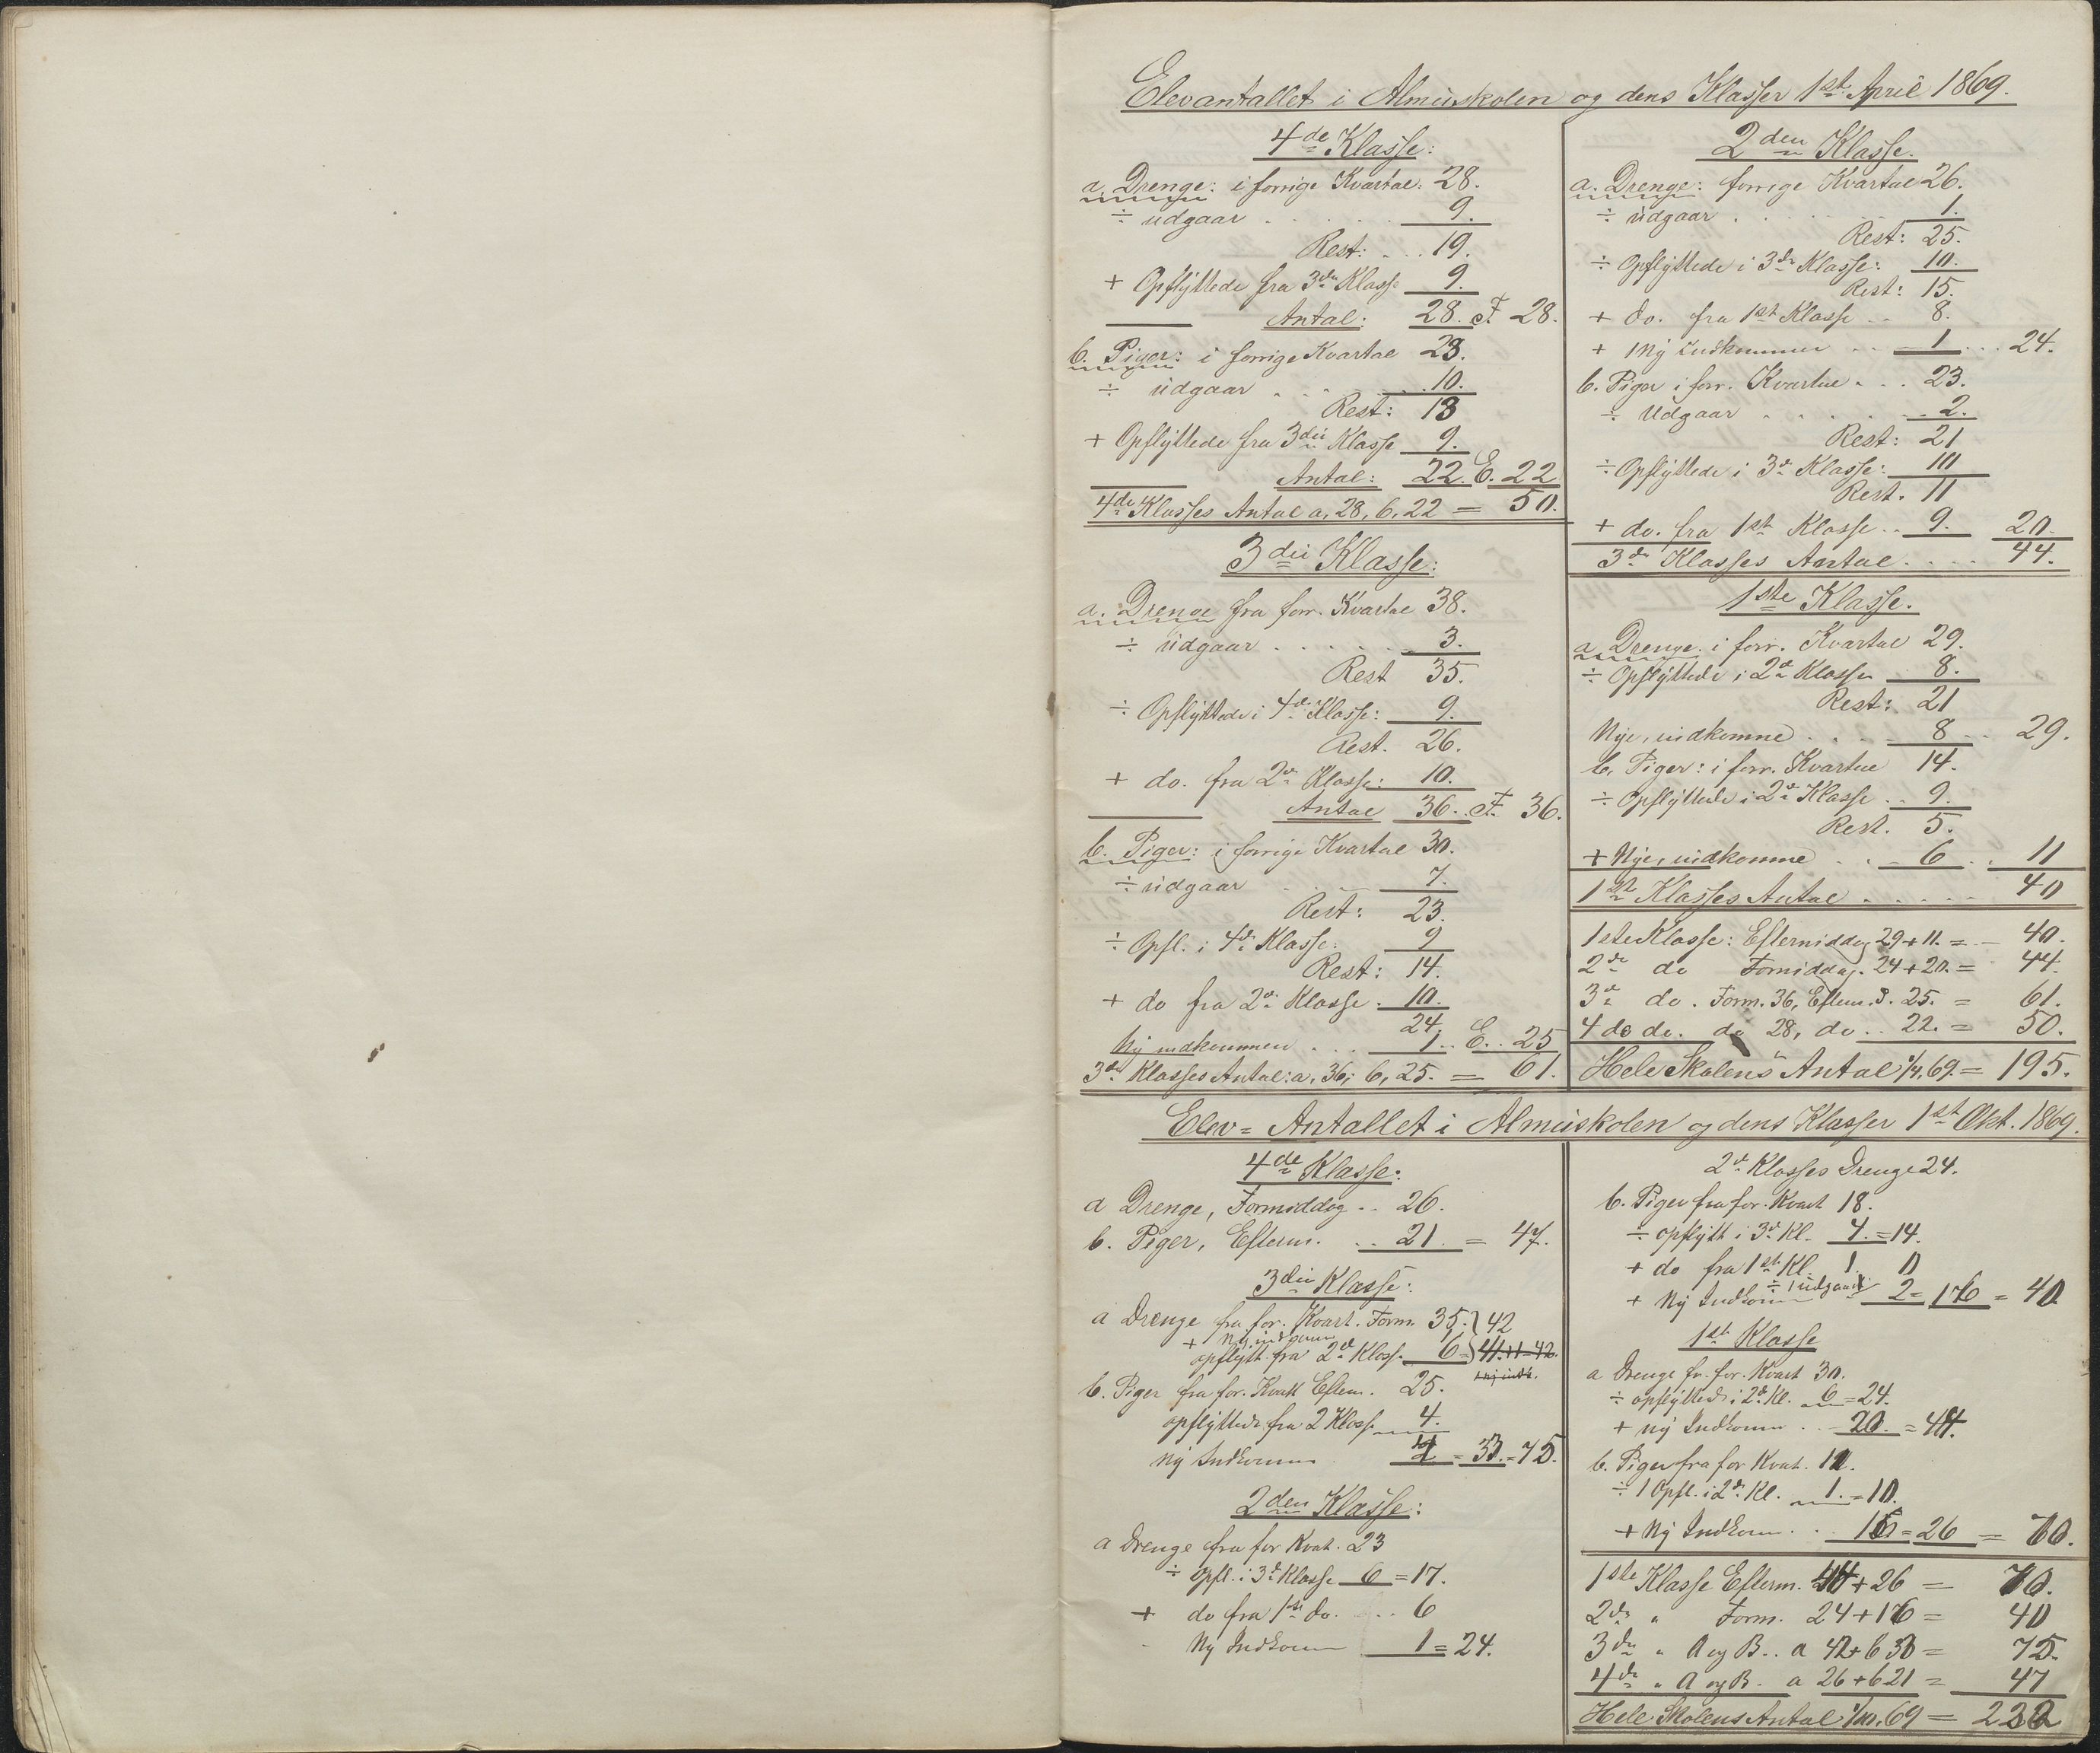 Elevantallet i Almuskolen og dens Klasser 1ste April 1869.
4de Klasse:
a. Drenge: i forrige Kvartal: 28.
÷ udgaar . . . . . 9.
Rest: . . 19.
+ Opflyttede fra 3die Klasse 9.
Antal: 28. F. 28.
b. Piger: i forrige Kvartal 23.
÷ udgaar . . . . 10.
Rest: 13
+ Opflyttede fra 3die Klasse 9.
Antal: 22. E. 22
4de Klasses Antal a, 28, b, 22 = 50.
3die Klasse:
a. Drenge fra forr. Kvartal 38.
÷ udgaar . . . . . 3.
Rest 35.
÷ Opflyttede i 4de Klasse: 9.
Rest. 26.
+ do. fra 2den Klasse: 10.
Antal 36. F. 36.
b. Piger: i forrige Kvartal 30.
÷ udgaar . . . 7.
Rest: 23.
÷ Opfl. i 4de Klasse: 9
Rest: 14.
+ do fra 2den Klasse . 10.
24.
Ny indkommen . . . 1 . . E. . 25
3die Klasses Antal: a, 36; b, 25. = 61.
2den Klasse.
a. Drenge: forrige Kvartal 26.
÷ udgaar . . . . . 1.
Rest: 25.
÷ Opflyttede i 3die Klasse: 10.
Rest: 15.
+ do. fra 1ste Klasse . . 8.
+ 1 Ny indkommen . . . 1 . . . 24.
b. Piger i forr. Kvartal . . . 23.
÷ Udgaar . . . . . . 2.
Rest: 21
÷ Opflyttede i 3die Klasse: 10
Rest. 11
+ do. fra 1ste Klasse . . 9. 20.
3die Klasses Antal . . . . 44.
1ste Klasse.
a. Drenge. i forr. Kvartal 29.
÷ Opflyttede i 2den Klasse 8.
Rest: 21
Nye, indkomne . . . . 8 . . 29.
b. Piger: i forr. Kvartal 14.
÷ Opflyttede i 2den Klasse . . 9.
Rest. 5.
+ Nye, indkomne . . . 6 . . 11
1ste Klasses Antal . . . . . 40
1ste Klasse: Eftermiddag 29 + 11. = 40.
2den do Formiddag. 24 + 20. = 44.
3die do. Form. 36, Efterm. 25. = 61.
4de do. do 28, do . . 22. = 50.
Hele Skolens Antal 1/4, 69. = 195.
Elev=Antallet i Almuskolen og dens Klasser 1ste Okt. 1869.
4de Klasse:
a Drenge, Formiddag . . 26.
b. Piger, Efterm. . . 21 = 47.
3die Klasse:
a Drenge fra for. Kvart. Form. 35. } 42
+ Ny indkom
opflytt. fra 2den Klasse 6 = 41 + 1 = 42.
1 ny indk.
b. Piger fra for. Kvart Efterm. 25.
opflyttede fra 2 Klasse 4.
Ny Indkomne 4 = 33. = 75.
2den Klasse:
a Drenge fra for Kvart. 23
÷ Opfl. i 3die Klasse 6 = 17.
+ do fra 1ste do. . . . 6
Ny Indkomne 1 = 24.
2den Klasses Drenge 24.
b. Piger fra for. Kvart 18.
÷ opflytt i 3die Kl. 4. = 14.
+ do fra 1ste Kl. 1
÷ 1 udgaaet
+ Ny Indkomne 2 = 16 = 40
1ste Klasse
a Drenge fr. for. Kvart 30.
÷ opflyttede i 2den Kl. 6 = 24.
+ ny Indkomne . . 20. = 44.
b. Piger fra for Kvart. 11.
÷ 1 Opfl. i 2den Kl. 1. = 10.
+ Ny Indkom . . . 16 = 26 = 70.
1ste Klasse Efterm. 44 + 26 = 70.
2den " Form. 24 + 16 = 40
3die " A og B . . a 42 + b 33 = 75.
4de " A og B . a 26 + b 21 = 47
Hele Skolens Antal 1/10, 69 = 232